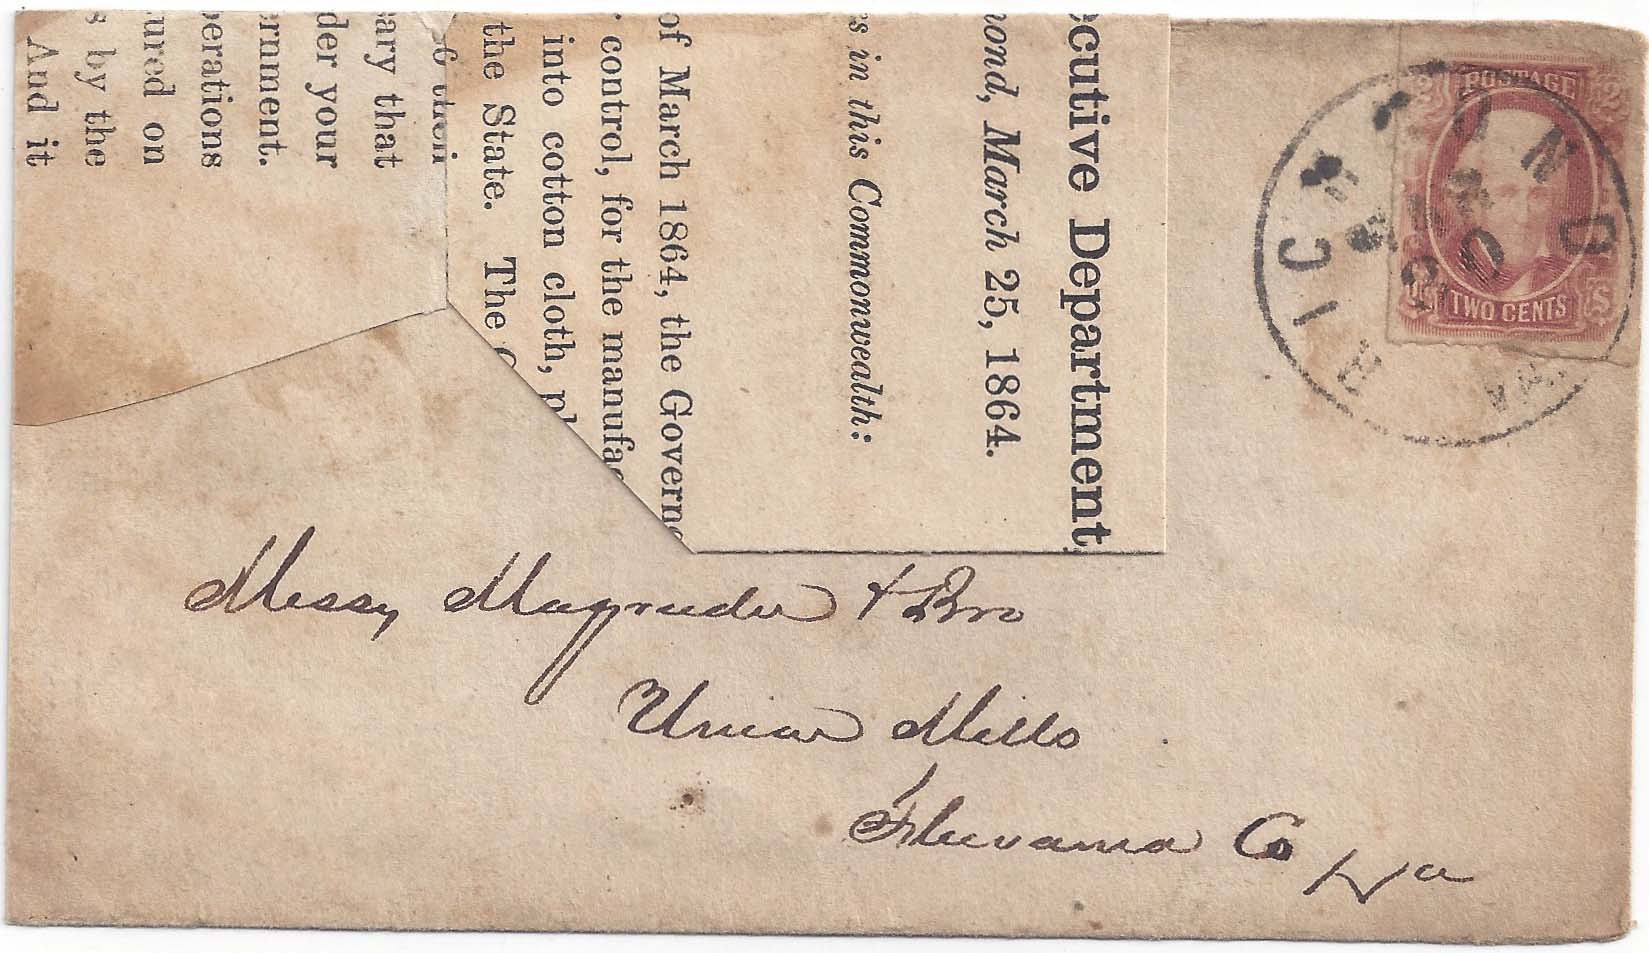 ecutive Department,
mond, March 25, 1864.
ss in this Commonwealth:
of March 1864, the Governo
control, for the manufac
into cotton cloth, pl
the State. The
ary that
der your
ernment.
perations
ured on
s by the
And it
POSTAGE
2 2
TWO CENTS
RICHMOND
VA
Messrs Magruder & Bro
Union Mills
Fluvanna Co
Va